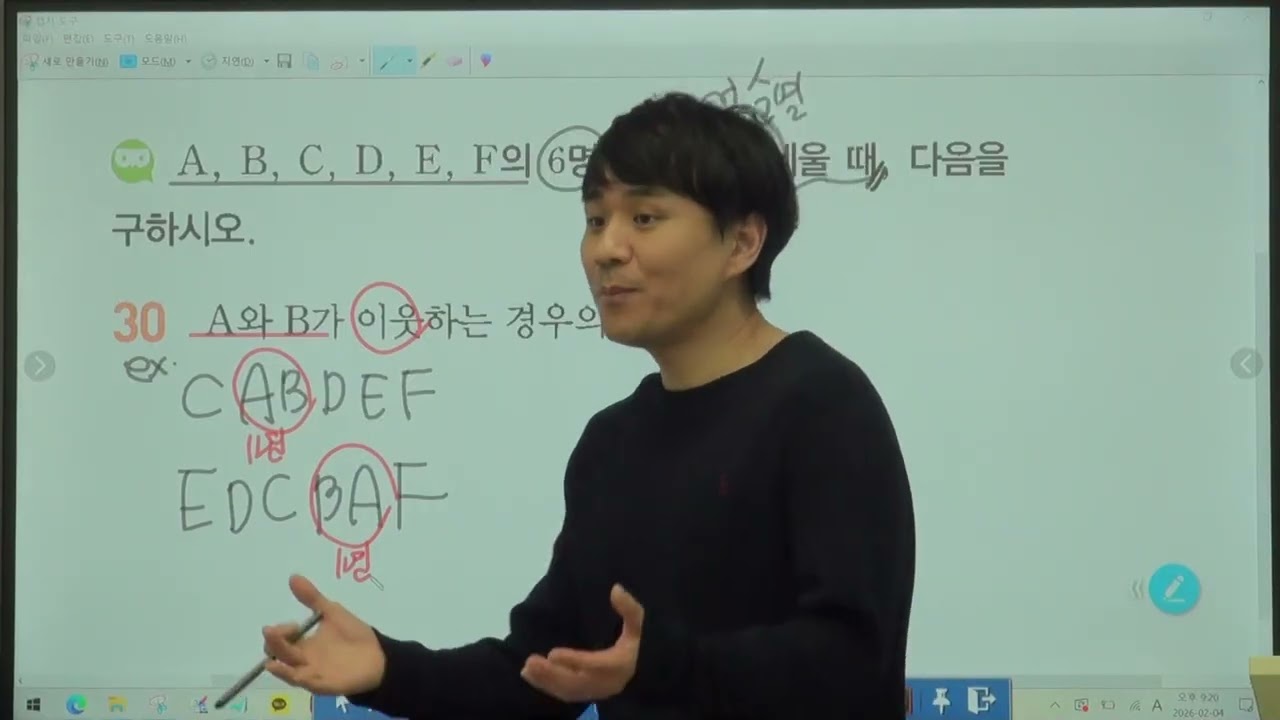 캡처 도구
파일(F) 편집(E) 도구(T) 도움말(H)
새로 만들기(N) 모드(M) 지연(D)
A, B, C, D, E, F의 6명 세울 때, 다음을
구하시오.
30 A와 B가 이웃하는 경우의
ex.
C A B D E F
1명
E D C B A F
1명
A 오후 9:20
2026-02-04